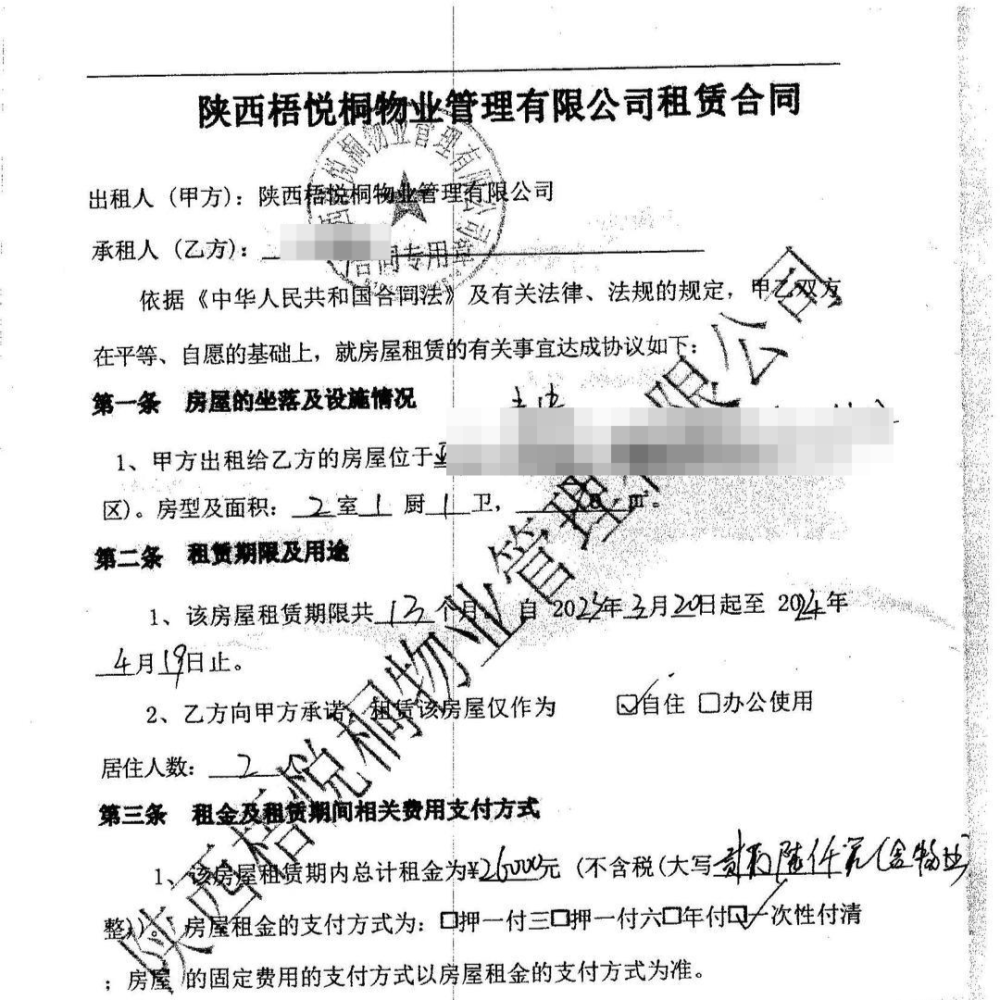 陕西梧悦桐物业管理有限公司租赁合同
出租人（甲方）：陕西梧悦桐物业管理有限公司
承租人（乙方）：
合同专用章
依据《中华人民共和国合同法》及有关法律、法规的规定，甲乙双方
在平等、自愿的基础上，就房屋租赁的有关事宜达成协议如下：
第一条 房屋的坐落及设施情况
1、甲方出租给乙方的房屋位于
区）。房型及面积：2室1厨1卫， ㎡。
第二条 租赁期限及用途
1、该房屋租赁期限共13个月，自2023年3月20日起至2024年
4月19日止。
2、乙方向甲方承诺，租赁该房屋仅作为 ☑自住 □办公使用
居住人数：2个
第三条 租金及租赁期间相关费用支付方式
1、该房屋租赁期内总计租金为¥26000元（不含税(大写贰万陆仟元(含物业)
整)）。房屋租金的支付方式为：□押一付三□押一付六□年付☑一次性付清
；房屋 的固定费用的支付方式以房屋租金的支付方式为准。
陕西梧悦桐物业管理有限公司